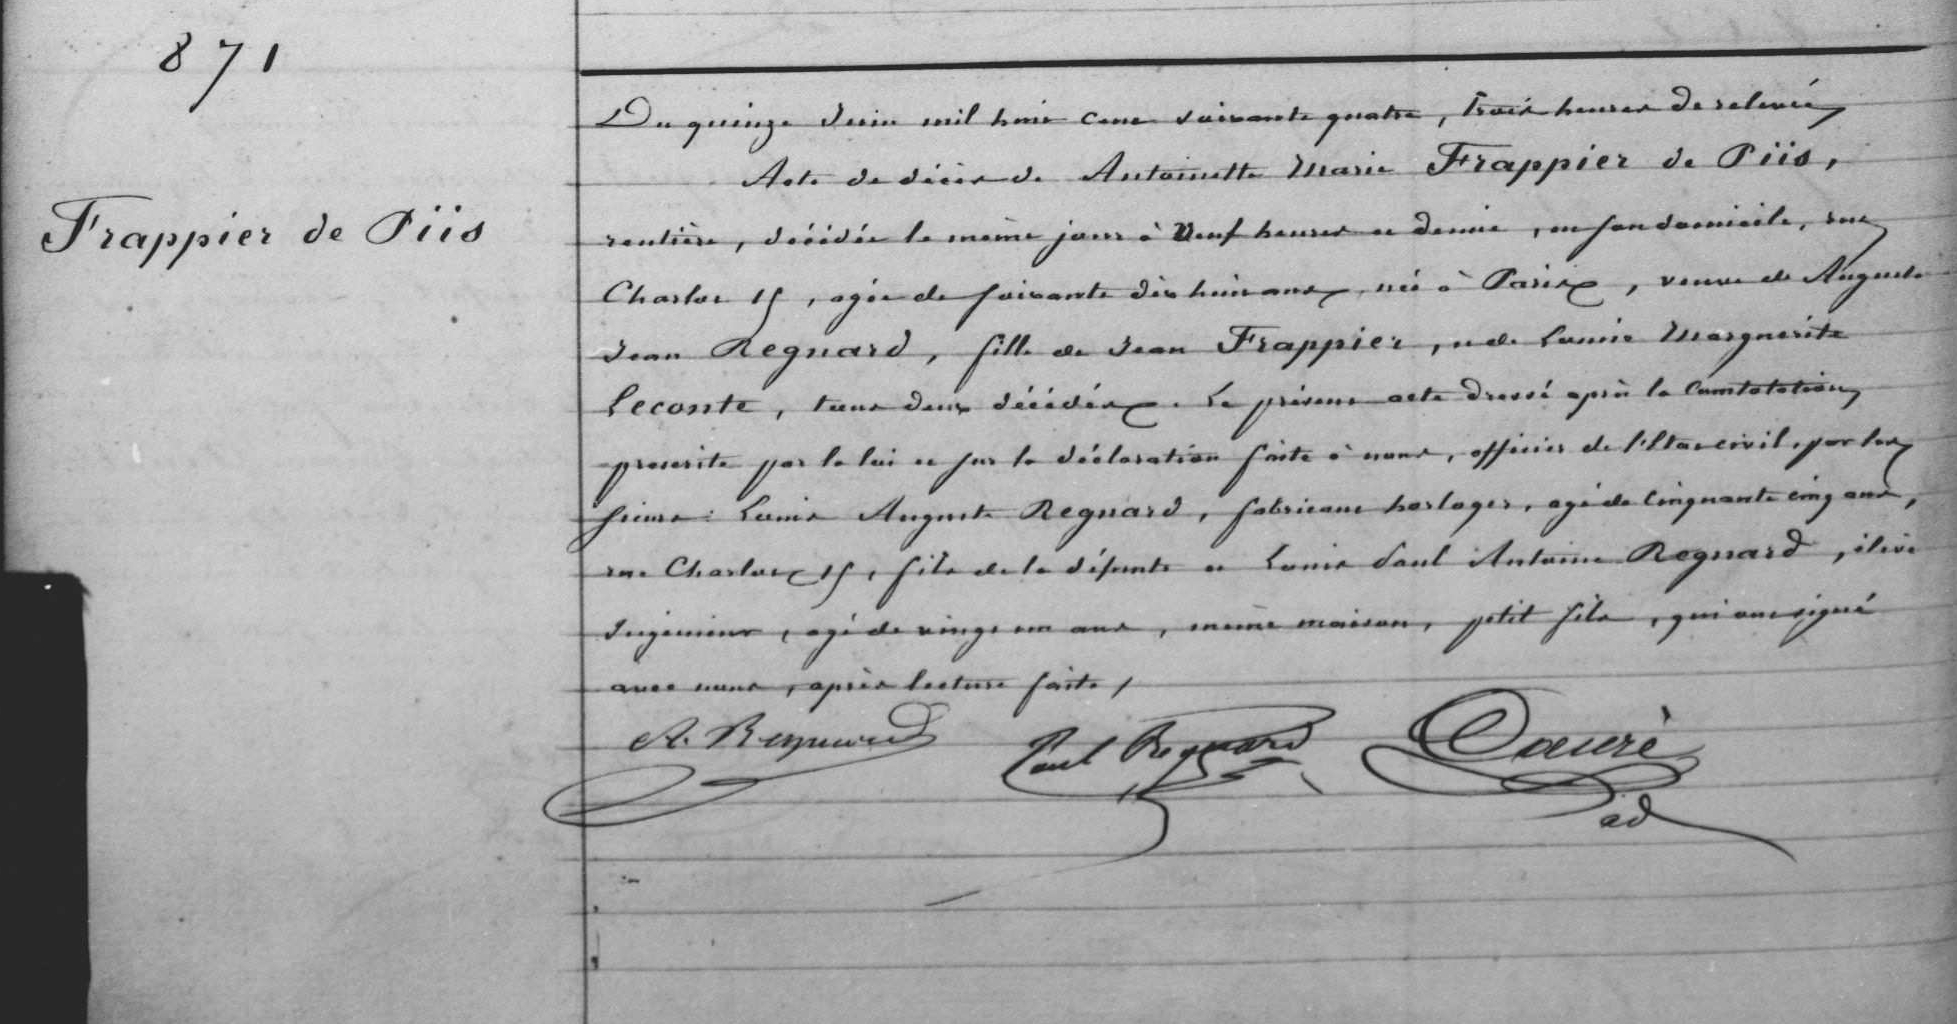 871
Frappier de Piis
Du quinze Juin mil huit cent soixante quatre, trois heures de relevée
Acte de décès de Antoinette Marie Frappier de Piis,
rentière, décédée le même jour à neuf heures et demie, en son domicile, rue
Charlot 15, agée de soixante dix huit ans, née à Paris, veuve de Auguste
Jean Regnard, fille de Jean Frappier, et de Louise Marguerite
Leconte, tous deux décédés. Le présent acte dressé après la Constatation
prescrite par la loi et sur la déclaration faite à nous, officier de l'Etat civil, par les
sieurs : Louis Auguste Regnard, fabricant horloger, agé de Cinquante cinq ans,
rue Charlot 15, fils de la défunte et Louis Paul Antoine Regnard, élève
Ingénieur, agé de vingt un ans, même maison, petit fils, qui ont signé
avec nous, après lecture faite /
A. Regnard Paul Regnard
ad